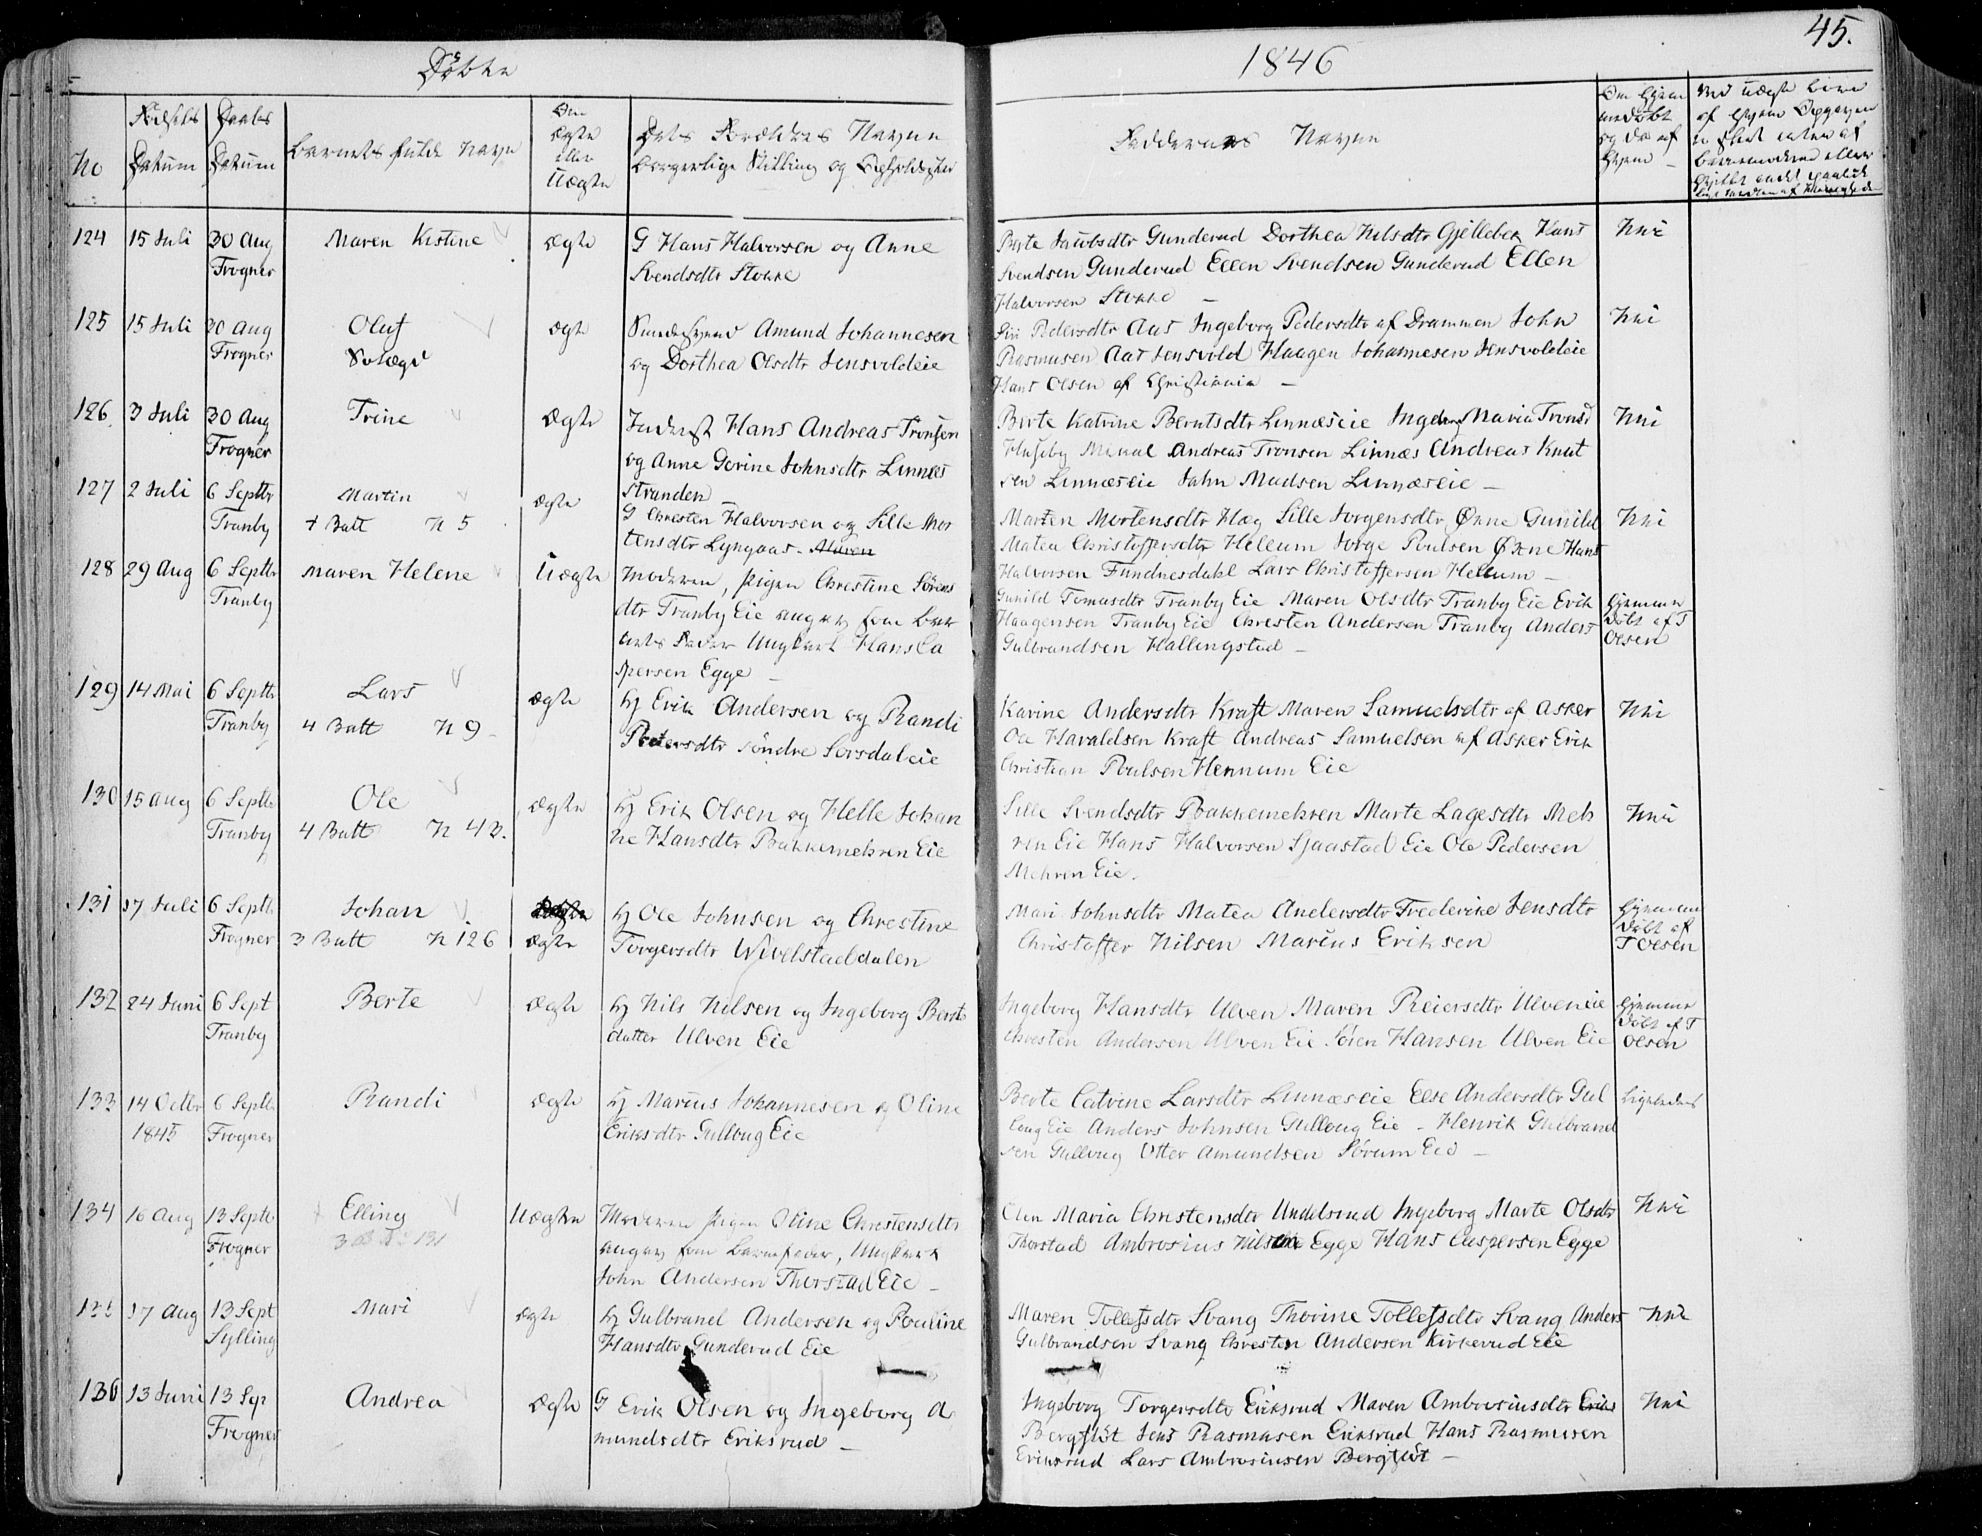 Døbte
1846
45.
No
Fødsels Datum
Daabs Datum
Barnets fulde Navn
Om ægte eller Uægte
Dets Forældres Navne
borgerlige Stilling og Opholdssted
Faddernes Navne
Om Hjemmedøbt og da af Hvem
124 15 Juli 30 Aug Maren Kistine ægte G Hans Halvorsen og Anne
Frogner Svendsdtr Stokke
Berte Jacobsdtr Gunderud Dorthea Nilsdtr Gjellebek Hans Nei
Svendsen Gunderud Ellen Svendsen Gunderud Ellen
Halvorsen Stokke –
125 15 Juli 30 Aug Oluf ægte Amund Johannesen
Frogner og Dorthea Olsdtr Jensvoldeie
Siri Pedersdtr Aas Ingeborg Pedersdtr af Drammen John Nei
Rasmusen Aas Jensvold Haagen Johannesen Jensvoldeie
Hans Olsen af Christiania –
126 3 Juli 30 Aug Trine Ægte Inderst Hans Andreas Tronsen
Frogner og Anne Gorine Johnsdtr Linnes
Stranden –
Berte Katrine Berntsdtr Linnæseie Ingeborg Maria Tronsd Nei
Huseby Andreas Tronsen Linnæs Andreas Knut
sen Linnæseie John Madsen Linnæseie –
127 2 Juli 6 Septbr Martin ægte G Chresten Halvorsen og Sille Mor
Tranby 4 Batt N 5 tensdtr Lyngaas – Maren
Marten Mortensdtr Hæg Sille Jorgensdtr Øvne Gunild Nei
Matea Christoffersdtr Hellum Jorge Poulsen Øvne Hans
Halvorsen Fundnesdahl Lars Christoffersen Hellum –
128 29 Aug 6 Septbr Maren Helene Uægte Moderen, Pigen Chrestine Sørens
Tranby dtr Tranby Eie angav som Bar
nets Fader Ungkarl Hans Ca
spersen Egge –
Gunild Tomasdtr Tranby Eie Maren Olsdtr Tranby Eie Erik Hjemme
Haagensen Tranby Eie Chresten Andersen Tranby Anders døbt af T
Gulbrandsen Hallingstad – Olsen
129 14 Mai 6 Septbr Lars ægte Hj Erik Andersen og Randi
Tranby 4 Batt N 9 – Pedersdtr søndre Sørsdaleie
Karine Andersdtr Kraft Maren Samuelsdtr af Asker Nei
Ole Havaldsen Kraft Andreas Samuelsen af Asker Erik
Christian Poulsen Hennum Eie
130 15 Aug 6 Septbr Ole ægte Hj Erik Olsen og Helle Johan
Tranby 4 Batt N 43. ne Hansdtr Bakkemehren Eie
Sille Svendsdtr Bakkemehren Marte Lagesdtr Meh Nei
ren Eie Hans Halvorsen Sjaastad Eie Ole Pedersen
Mehren Eie.
131 17 Juli 6 Septbr Johan Hj Ole Johnsen og Chrestine
Frogner 3 Batt N 126 ægte Torgersdtr Wivelstaddalen
Mari Johnsdtr Matea Andersdtr Frederike Jensdtr Hjemme
Christoffer Nilsen Marius Eriksen døbt af T Olsen
132 24 Juni 6 Sept Berte ægte Hj Nils Nilsen og Ingeborg Bernts
Tranby datter Ulven Eie
Ingeborg Hansdtr Ulven Maren Reiersdtr Ulveneie Hjemme
Chresten Andersen Ulven Eie Søren Hansen Ulven Eie døbt af T Olsen
133 14 Octbr 6 Septbr Randi ægte Hj Marius Johannesen og Oline
1845 Frogner Eriksdtr Gulloug Eie
Berte Catrine Larsdtr Linnæseie Else Andersdtr Gul Ligeledes
loug Eie Anders Johnsen Gulloug Eie – Henrik Gulbrand
sen Gulloug Otter Amundsen Sørum Eie –
134 16 Aug 13 Septbr Elling Uægte Moderen Pigen Stine Chrestensdtr
Frogner 3 B N 131 angav som Barnefader, Ungkarl
John Andersen Thorstad Eie –
Maria Christensdtr Undelsrud Ingeborg Marte Olsdtr Nei
Thorstad Ambrosius Nilsen Egge Hans Caspersen Egge
135 17 Aug 13 Sept Mari ægte Hj Gulbrand Andersen og Pouline
Sylling Hansdtr Gunderud Eie
Maren Tollefsdtr Svang Thorine Tollefsdtr Svang Anders Nei
Gulbrandsen Svang Chresten Andersen Kirkerud Eie
136 13 Juni 13 Sep Andrea ægte G Erik Olsen og Ingeborg A
Frogner mundsdtr Eriksrud –
Ingeborg Torgersdtr Eiksrud Maren Ambrosiusdtr Nei
Bergflot Jens Rasmusen Eriksrud Hans Rasmusen
Eriksrud Lars Ambrosiusen Bergflot –